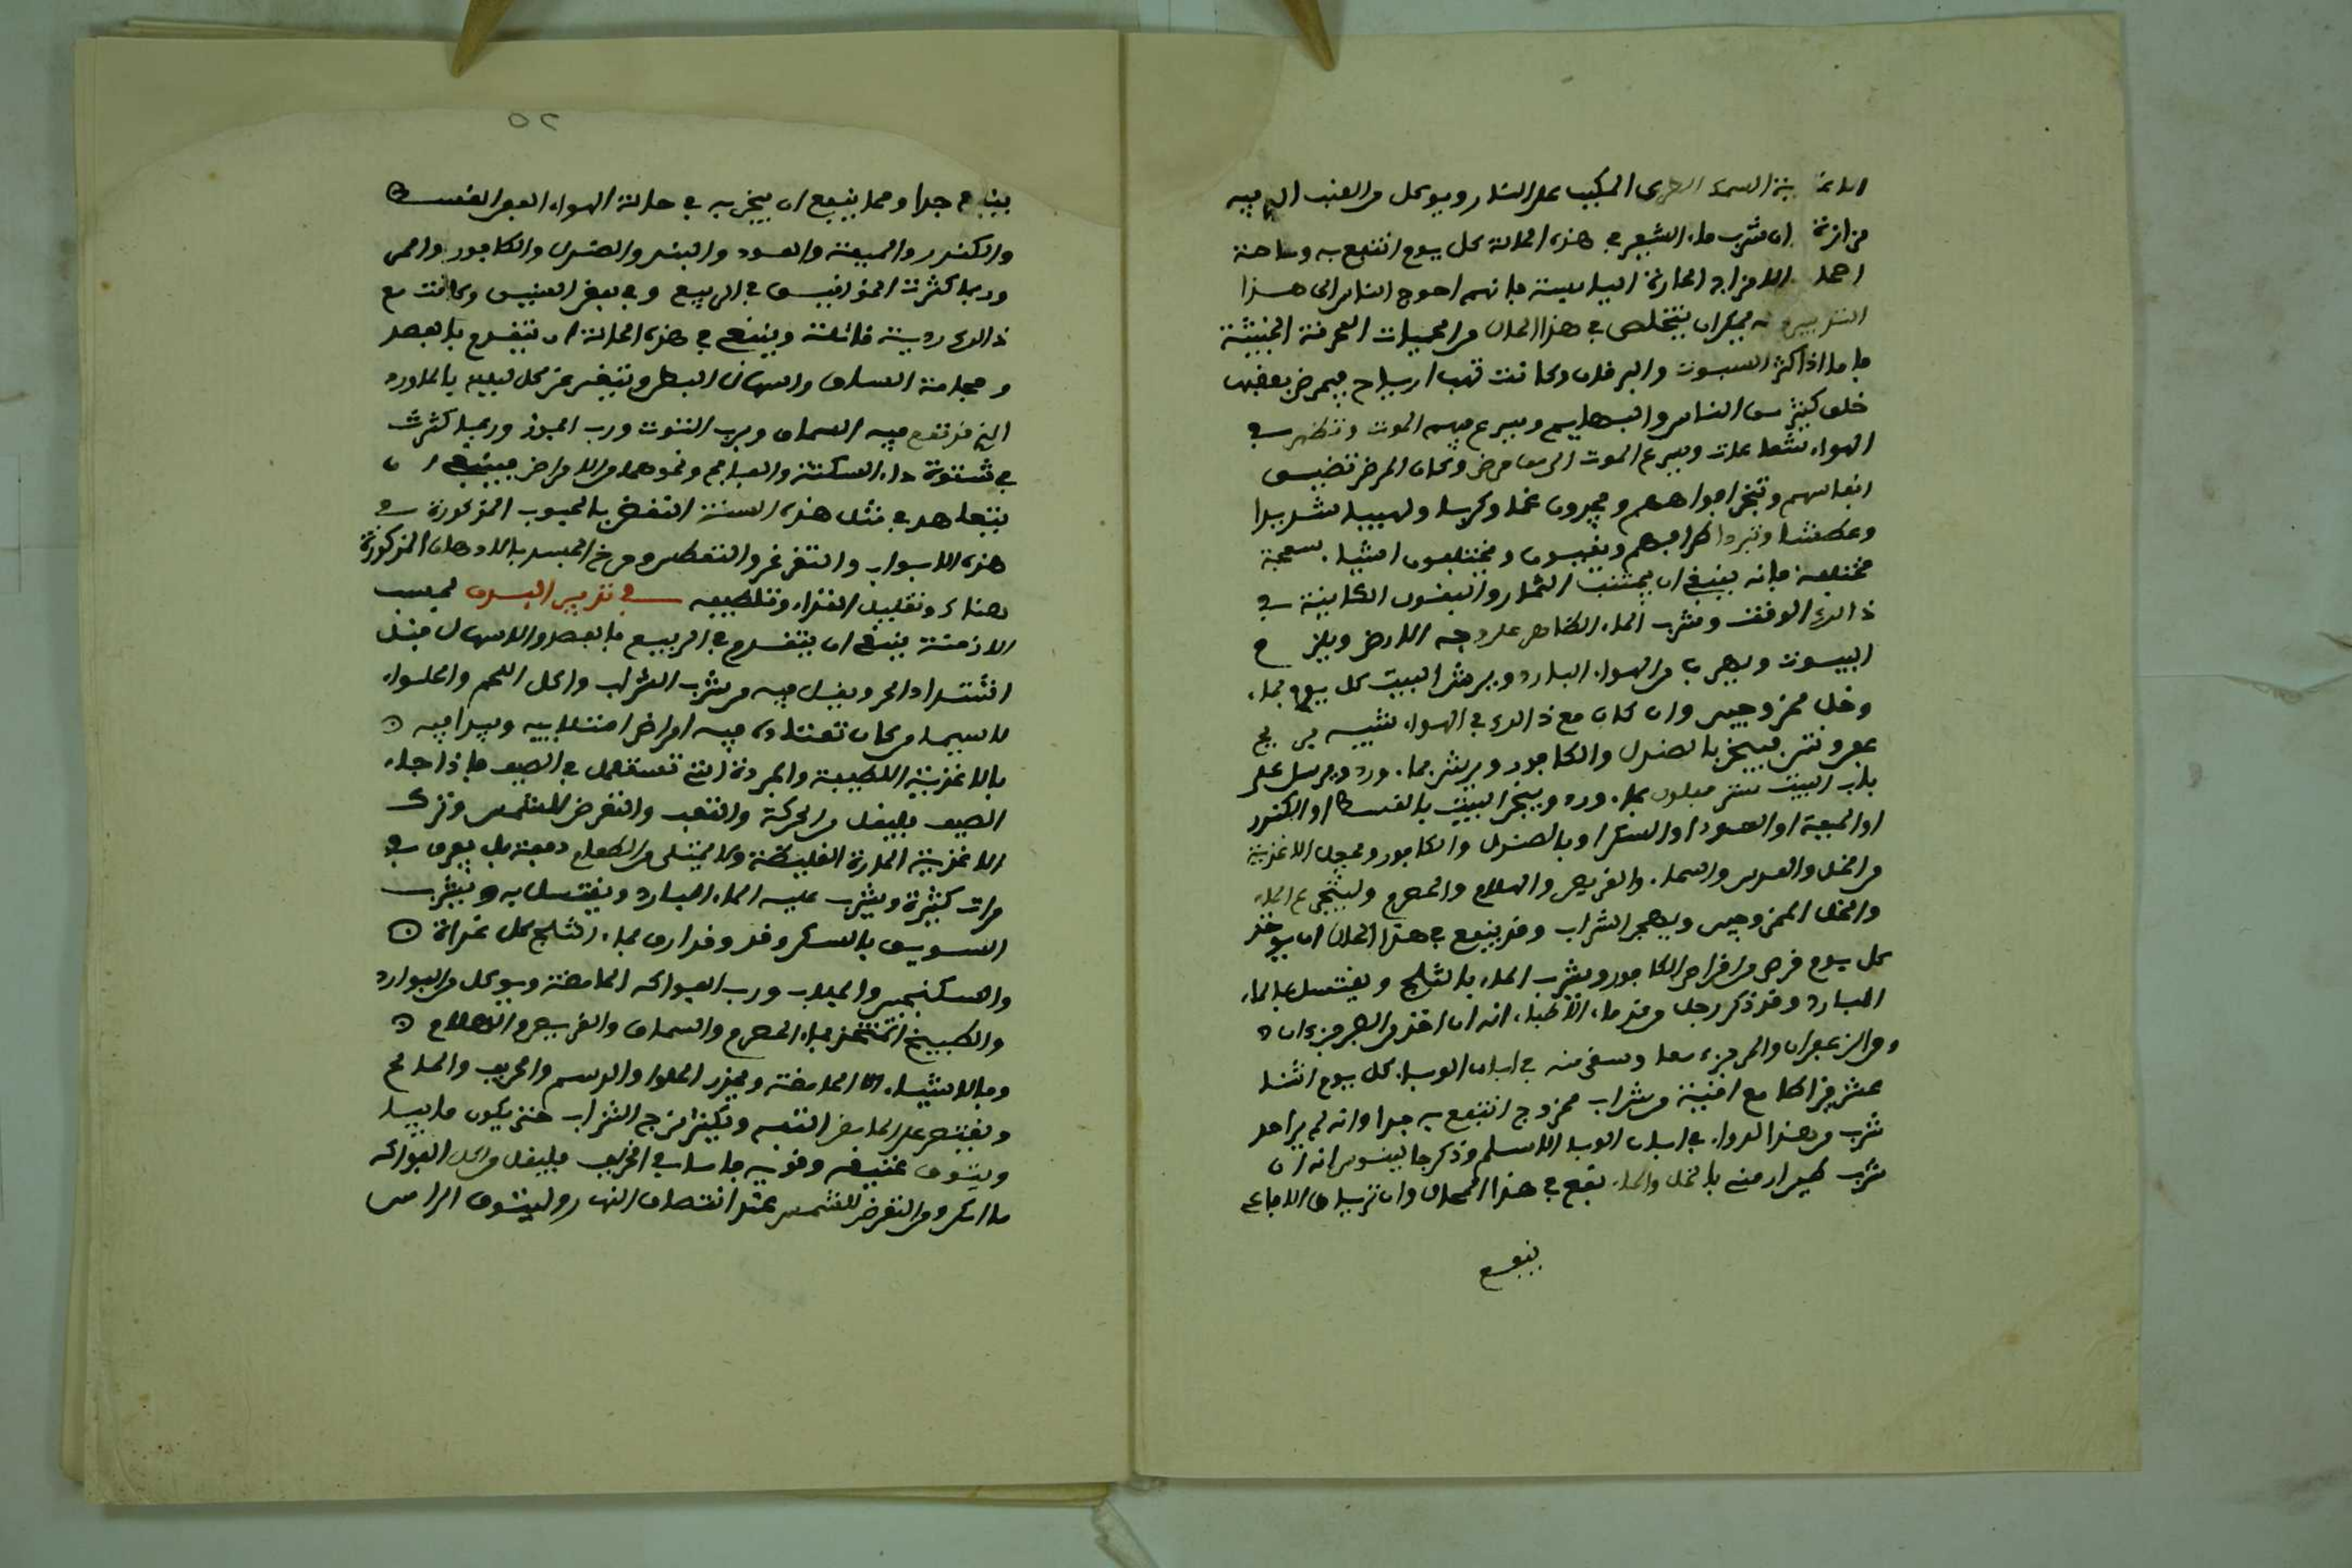 السمك الطرى المكبب على النار ويوكل من العنب الذى فيه
مزازة وان شرب ماء الشعير في هذه الحالة كل يوم انتفع به وخاصة
الامزاج الحارة اليابسة فانهم احوج الناس الى هذا
التدبير يمكن ان يتخلص في هذا الحال من الحميات العفنة الخبيثة
فاما اذا كثر الموت والبرقان وكانت تهب ارياح فيمرض بعقبها
خلق كثير من الناس والبهايم ويسرع فيهم الموت وتظهر في
الهواء شعاعات ويسرع الموت الى من مرض وكان المرض تضيق
انفاسهم وتبخر افواههم ويجدون غما وكربا ولهيبا شديدا
وعطشا وتبرد اطرافهم ويقيون ويختلفون اشيا سمجة
مختلفة فانه ينبغي ان يجتنب الثمار والبقول الكاينة في
ذالك الوقت وشرب الماء الظاهر على وجه الارض ويلزم
البيوت ويهرب من الهواء البارد ويرش البيت كل يوم بماء
وخل ممزوجين وان كان مع ذالك في الهواء شبيه
عفن ونتن فيبخر بالصندل والكافور ويرش بماء ورد ويرسل على
باب البيت ستر مبلول بماء ورد ويبخر البيت بالقسط او الكندر
او الميعة او العود او السكر او بالصندل والكافور ويجعل الاغذية
من الخل والعدس والسماق والقريص والهلام والحصرم وليتجرع الماء
والخل الممزوجين ويهجر الشراب وقد ينفع في هذا الحال ان يوخذ
كل يوم قرص من اقراص الكافور ويشرب الماء بالثلج ويغتسل بالماء
البارد وقد ذكر رجل من قدماء الاطباء انه ان اخذ من الصبر جزءان
ومن الزعفران والمر جزء معا وسقي منه في ابان الوباء كل يوم اثنا
عشر قيراطا مع اوقية من شراب ممزوج انتفع به جدا وانه لم ير احد
شرب من هذا الدواء في ابان الوباء الا سلم وذكر جالينوس انه ان
شرب طين ارمني بالخل والماء نفع في هذا الحال وان ترياق الافاعي
ينفع
٥٢
ينفع جدا ومما ينبغي ان يبخر به في حالة الهواء العفن القسط
والكندر والميعة والعود والند والصندل والكافور والمر
وربما كثرت الخوانيق في الربيع وفي بعض السنين وكانت مع
ذالك ردية قاتلة وينبغي في هذه الحالة ان يتقدم بالفصد
وحجامة الساق واسهال البطن ويتغرغر كل ليلة بالماورد
الذي قد نقع فيه السماق وبرب التوت ورب الجوز وربما كثرت
في شتوة داء السكتة والفالج ونحوهما من الامراض فينبغي ان
يتعاهد في مثل هذه السنة النفض بالحبوب المذكورة في
هذه الابواب والتغرغر والتعطس ومرخ الجسد بالادهان المذكورة
هناك وتقليل الغذاء وتلطيفه في تدبير البدن بحسب
الازمنة ينبغي ان يتقدم في الربيع بالفصد والاسهال قبل
اشتداد الحر ويقل فيه من شرب الشراب واكل اللحم والحلواء
لا سيما من كان تعتاده فيه امراض امتلايية ويبدا فيه
بالاغذية اللطيفة والمبردة التي تستعمل في الصيف فاذا جاء
الصيف فليقل من الحركة والتعب والتعرض للشمس وترك
الاغذية الحارة الغليظة ولا يمتلى من الطعام دفعة بل يفرق في
مرات كثيرة ويشرب عليه الماء البارد ويغتسل به ويشرب
السويق بالسكر وقد وقد ارق بماء الثلج كل غداة
والسكنجبين والجلاب ورب الفواكه الحامضة ويوكل من البوارد
والطبيخ المتخذ بماء الحصرم والسماق والقريص والهلام
وبالاشياء الحامضة ويحذر الحلوا والدسم والحريف والمالح
ويقتصر على الحامض التفه ويكثر مزج الشراب حتى يكون مايا
ويتوقى عتيقه وقويه فاما في الخريف فليقل من اكل الفواكه
ما امكن ومن التعرض للشمس عند انتصاف النهار وليتوق الراس